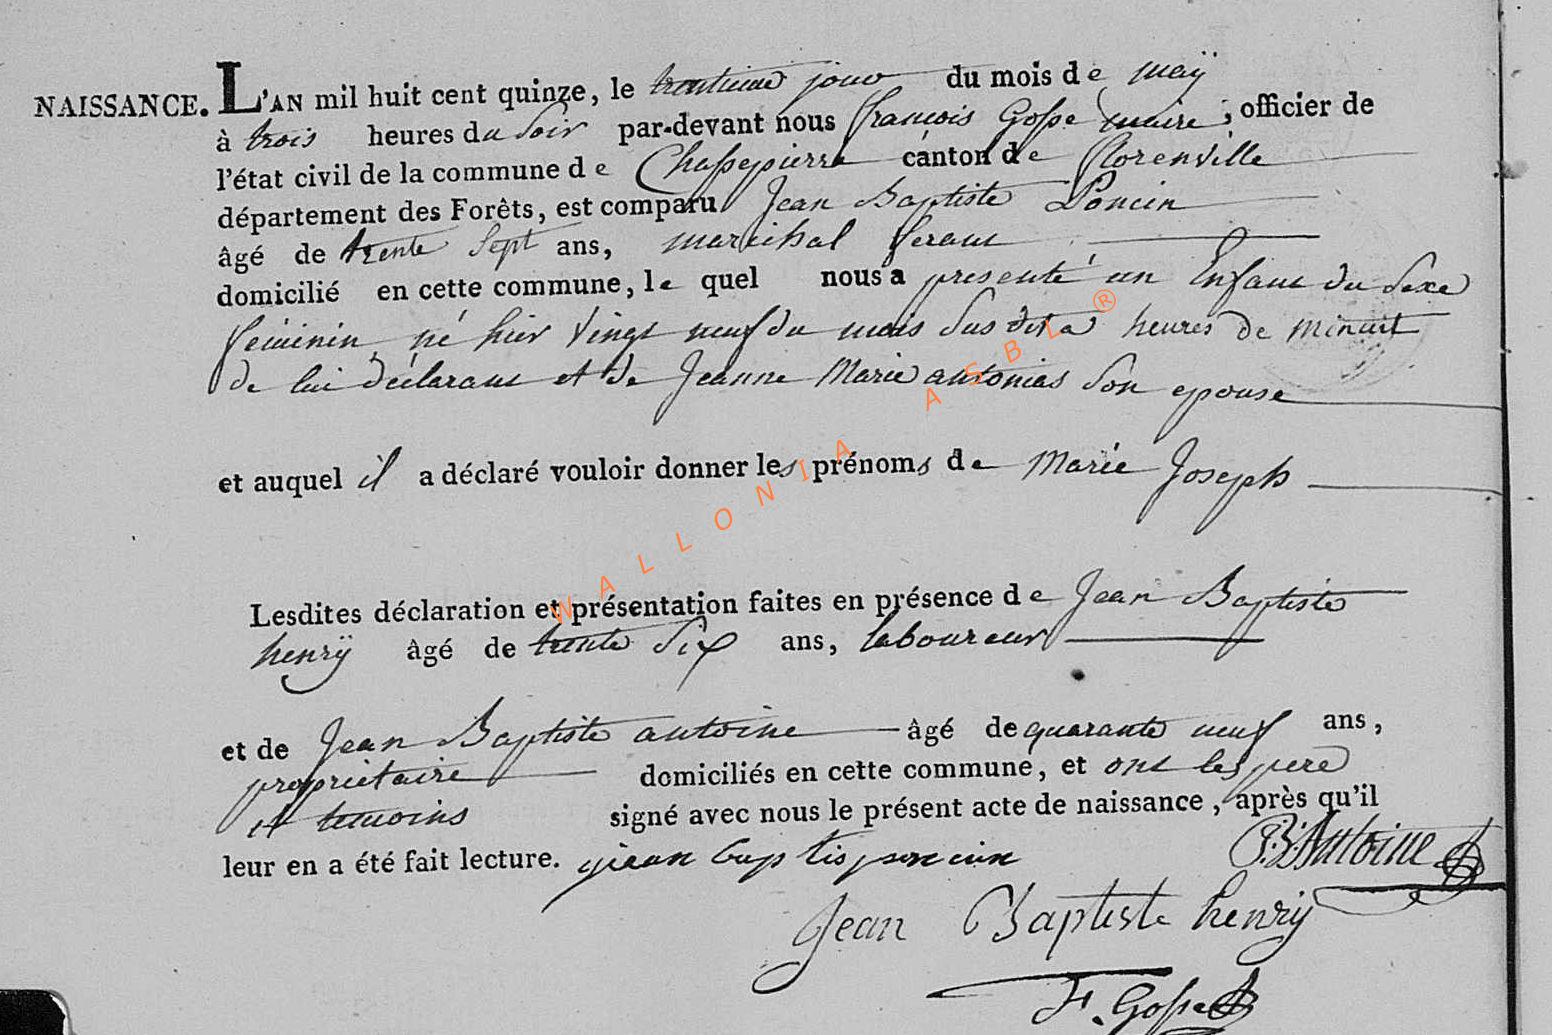 NAISSANCE. L'AN mil huit cent quinze, le trentieme jour du mois de maÿ
à trois heures du soir par-devant nous francois Gosse maire, officier de
l'état civil de la commune de Chassepierre canton de florenville
département des Forêts, est comparu Jean Baptiste Poncin
âgé de trente sept ans, marechal ferant
domicilié en cette commune, le quel nous a presenté un Enfant du Sexe
feminin né hier vingt neuf du mois Susdit a heures de minuit
de lui déclarant et de Jeanne Marie antonias Son epouse
et auquel il a déclaré vouloir donner les prénoms de Marie Joseph
Lesdites déclaration et présentation faites en présence de Jean Baptiste
henrÿ âgé de trente Six ans, laboureur
et de Jean Baptiste antoine âgé de quarante neuf ans,
proprietaire domiciliés en cette commune, et ont les pere
et temoins signé avec nous le présent acte de naissance, après qu'il
leur en a été fait lecture. jean baptis poncin
J.B. Antoine
Jean Baptiste henrÿ
F. Gosse
WALLONIA ASBL ®